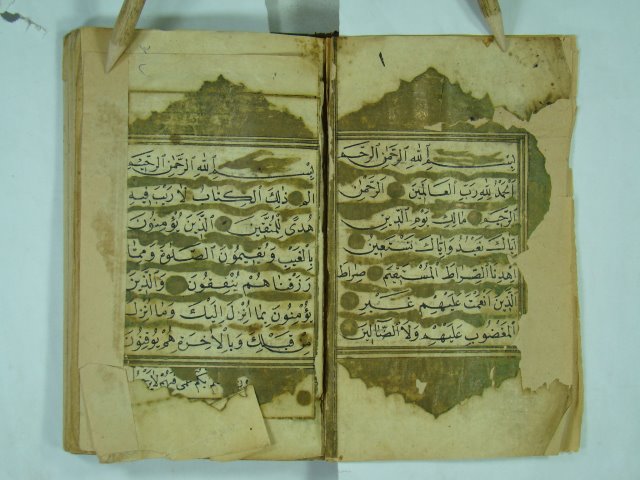 ١
بِسْمِ اللهِ الرَّحْمٰنِ الرَّحِيمِ
اَلْحَمْدُ لِلّٰهِ رَبِّ الْعَالَمِينَ الرَّحْمٰنِ
الرَّحِيمِ مَالِكِ يَوْمِ الدِّينِ
اِيَّاكَ نَعْبُدُ وَاِيَّاكَ نَسْتَعِينُ
اِهْدِنَا الصِّرَاطَ الْمُسْتَقِيمَ صِرَاطَ
الَّذِينَ اَنْعَمْتَ عَلَيْهِمْ غَيْرِ
الْمَغْضُوبِ عَلَيْهِمْ وَلَا الضَّالِّينَ
٢
بِسْمِ اللهِ الرَّحْمٰنِ الرَّحِيمِ
الم ذٰلِكَ الْكِتَابُ لَا رَيْبَ فِيهِ
هُدًى لِلْمُتَّقِينَ الَّذِينَ يُؤْمِنُونَ
بِالْغَيْبِ وَيُقِيمُونَ الصَّلٰوةَ وَمِمَّا
رَزَقْنَاهُمْ يُنْفِقُونَ وَالَّذِينَ
يُؤْمِنُونَ بِمَا اُنْزِلَ اِلَيْكَ وَمَا اُنْزِلَ
مِنْ قَبْلِكَ وَبِالْاٰخِرَةِ هُمْ يُوقِنُونَ